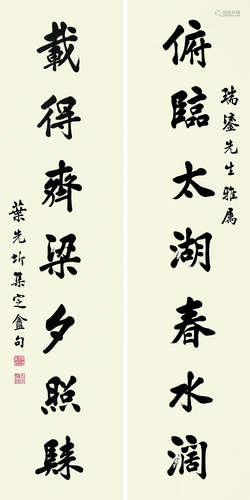 瑞鎏先生雅属
俯臨太湖春水濶
載得齊梁夕照
葉先圻集定盦句